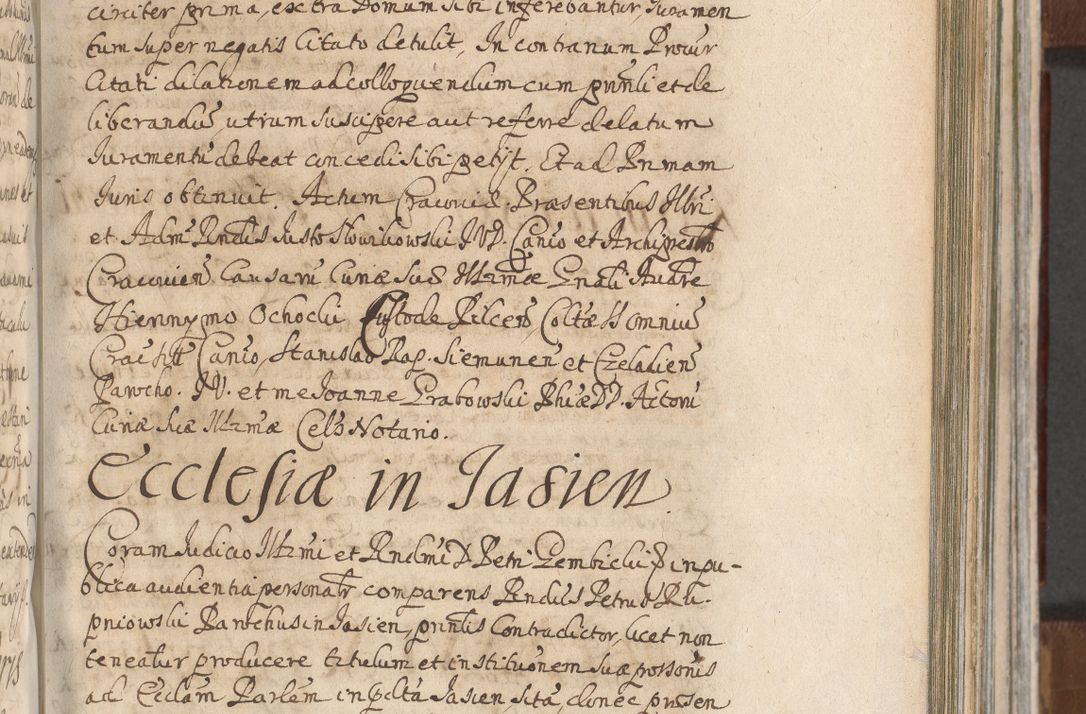 circiter prima, extra Domum sibi ingerebantur, Juramen
tum super negatis Citato detulit, In contrarium Procur
Citati dilationem ad colloquendum cum prinli et de
liberandũ, utrum suscipere aut referre delatum
Juramentũ debeat concedi sibi petijt. Et ad Primam
Juris obtinuit. Actum Cracoviæ Præsentibus Illri
et Admͬ Rndis Justo Słowikowski JVD. Canco et Archipresbro
Cracovien Causarũ Curiæ suæ Illrmæ Gnali Audre
Hieronymo Ochocki Custode Pilcen, Coltæ SS Omniũ
Crac Canco, Stanislao Rap. Siemunen et Czeladien
Parocho. JV. et me Joanne Grabowski Phiæ D. Actorũ
Curiæ suæ Illrmæ Cels Notario.
Ecclesiæ in Jasien.
Coram Judicio Illrmi et Rndmi D Petri Gembicki in pu-
blica audientia personalr comparens Rndus Petrus Ru
pniowski Parochus in Jasien, prinlis Contradictor, licet non
teneatur producere titulum et institutionem suæ personæ
ad Ecclam Parlem in polta Jasien sitã, donec prinsen